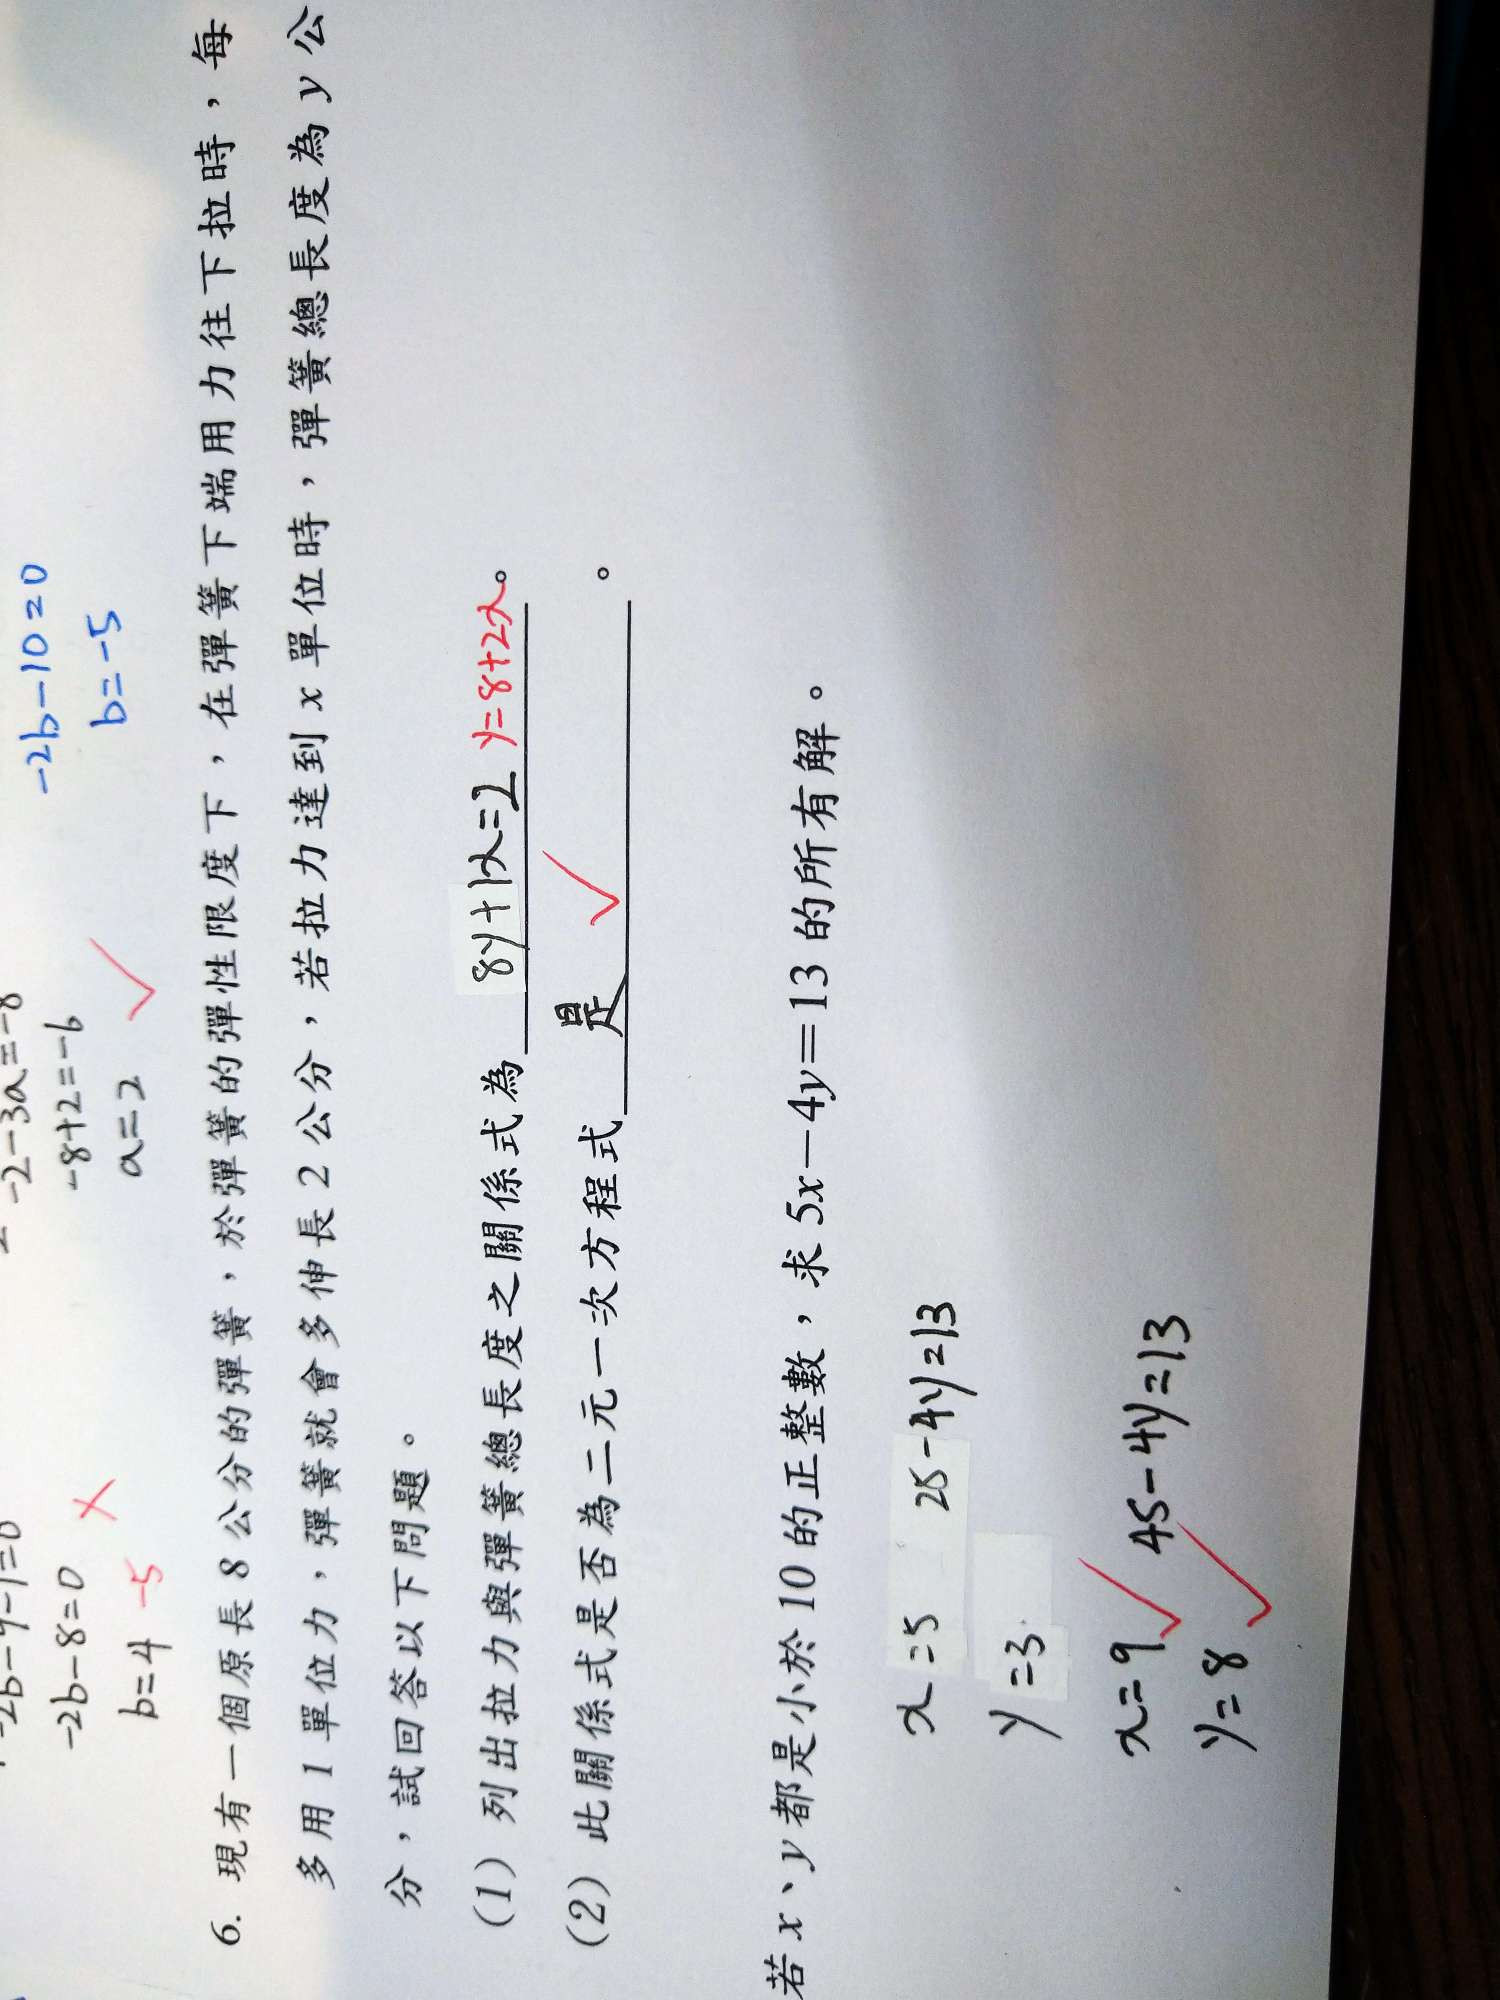 -2-3a=-8
-8+2=-6
a=2
-2b-10=0
b=-5
-2b-9-1=0
-2b-8=0
b=4 -5
6. 現有一個原長 8 公分的彈簧，於彈簧的彈性限度下，在彈簧下端用力往下拉時，每
多用 1 單位力，彈簧就會多伸長 2 公分，若拉力達到 x 單位時，彈簧總長度為 y 公
分，試回答以下問題。
(1) 列出拉力與彈簧總長度之關係式為 8y+1x=2 y=8+2x。
(2) 此關係式是否為二元一次方程式 是 。
若 x、y 都是小於 10 的正整數，求 5x－4y＝13 的所有解。
x=5 25-4y=13
y=3
x=9 45-4y=13
y=8